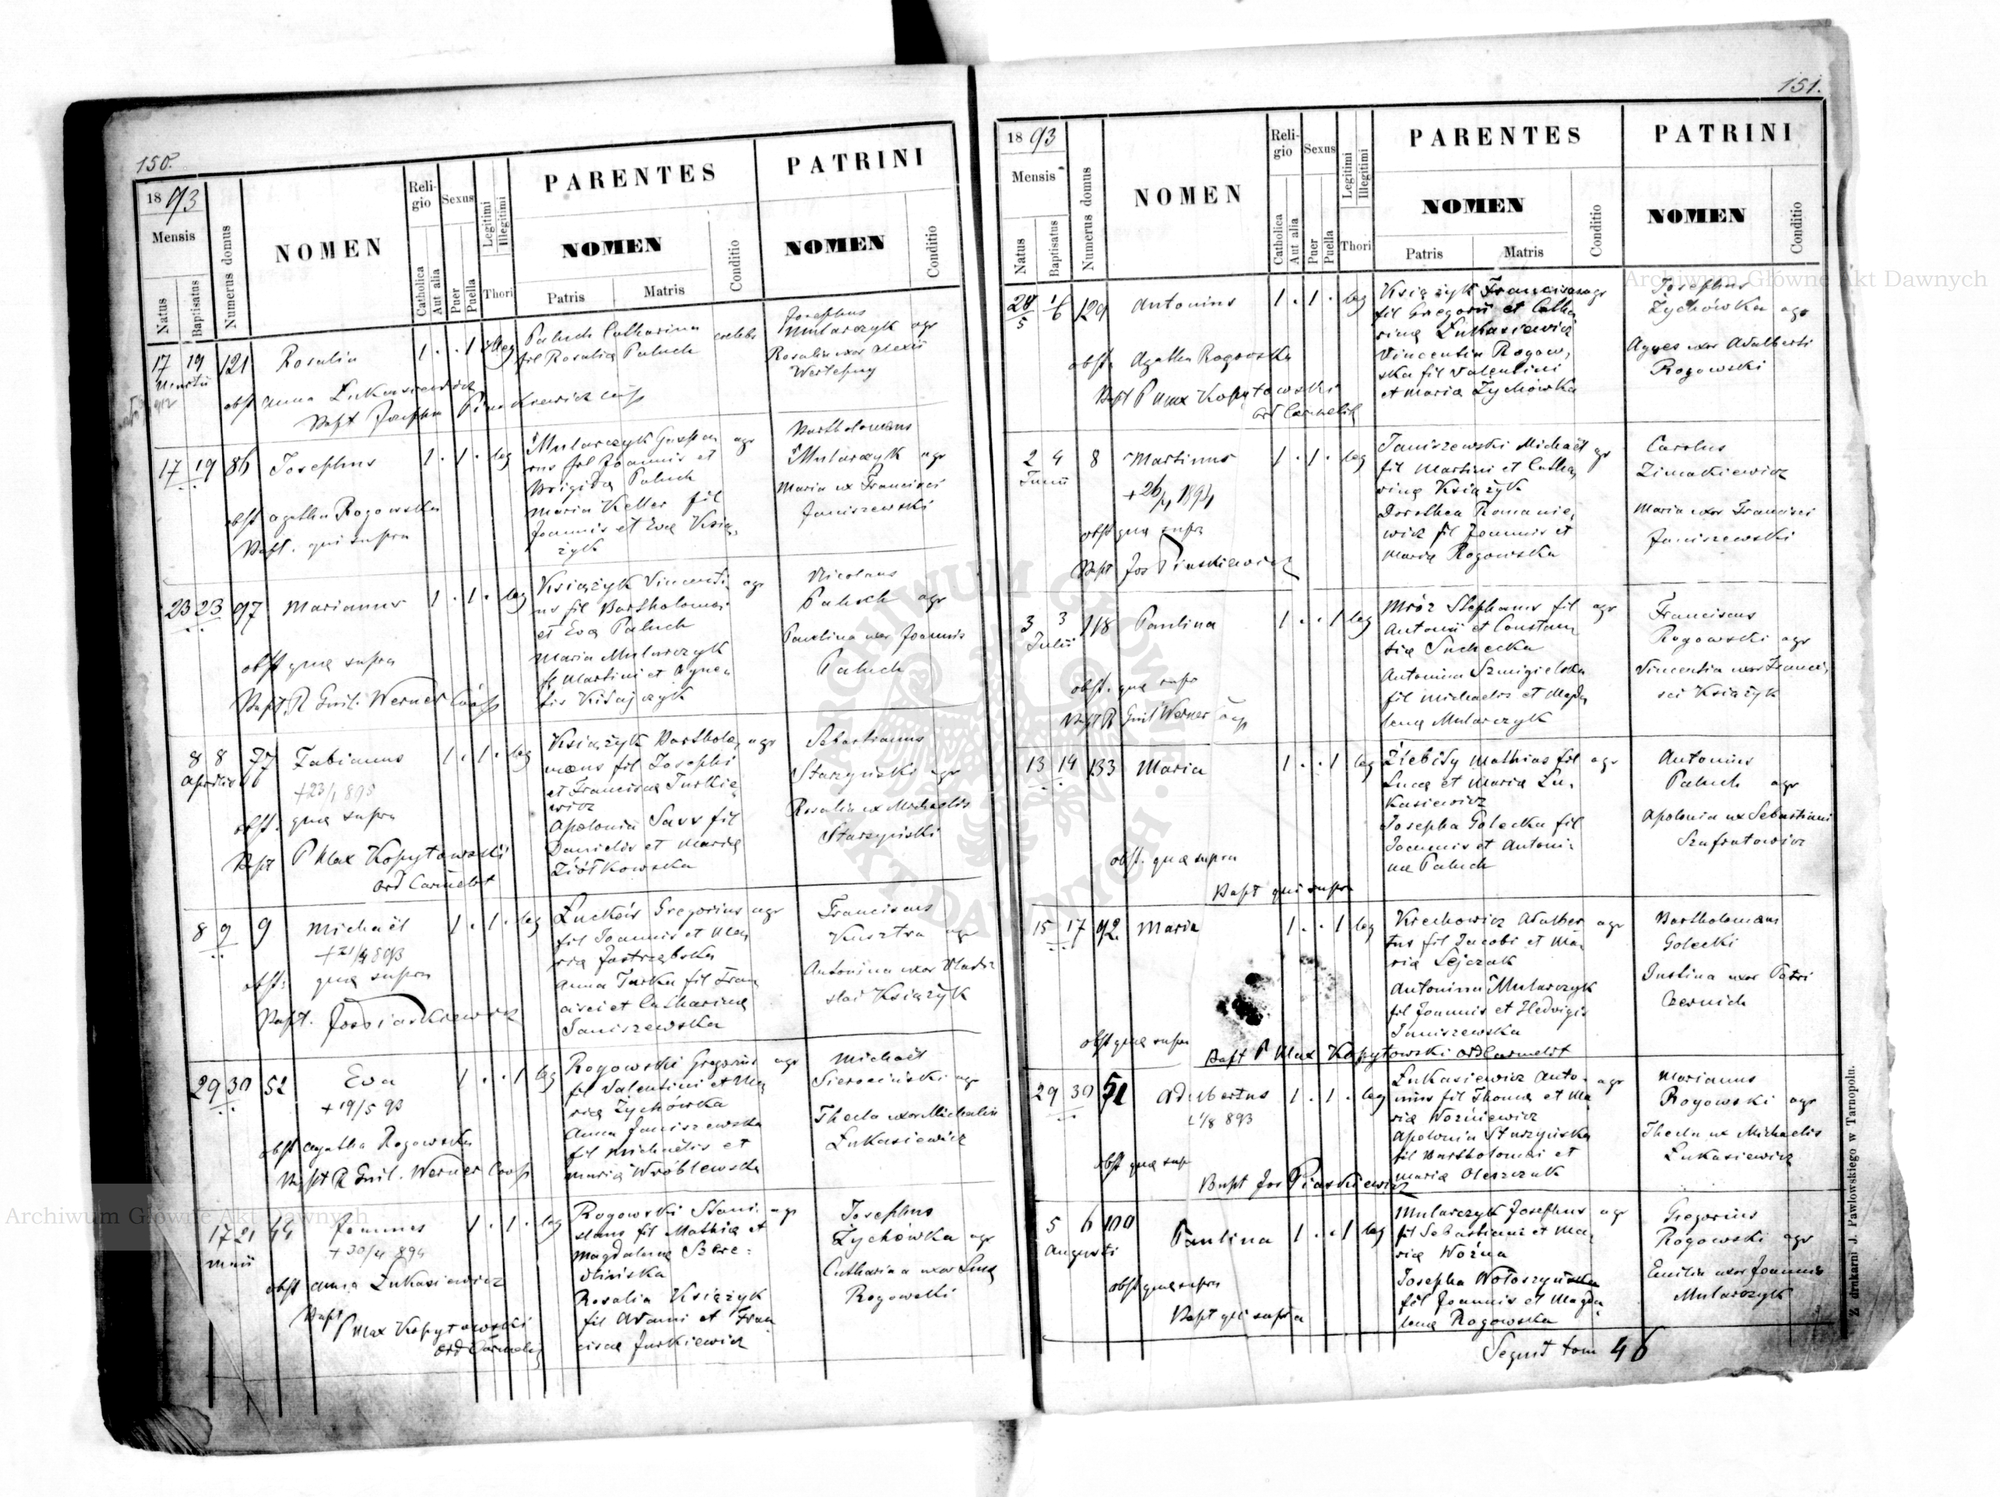 150.
1893
Mensis
Natus
Baptisatus
Numerus domus
NOMEN
Religio
Catholica
Aut alia
Sexus
Puer
Puella
Legitimi
Illegitimi
Thori
PARENTES
NOMEN
Patris
Matris
Conditio
PATRINI
NOMEN
Conditio
17 19 121 Rosalia 1 . . 1 illeg
Martii
obst Anna Lukasiewicz
Bapt Josephus Piaskiewicz
Paluch Catharina
fil Rosalia Paluch
Josephus
Mularczyk agr
Rosalia uxor Alexii
Wertepny
17 19 86 Josephus 1 . 1 . leg
obst Agatha Rogowska
Bapt. qui supra
Mularczyk Gaspa agr
rus fil Joannis et
Brigida Paluch
Maria Keller fil
Joannis et Eva Ksią
żyk
Bartholomaeus
Mularczyk agr
Maria ux Francisci
Janiszewski
23 23 97 Marianus 1 . 1 . leg
obst quae supra
Bapt R Guil. Werner Coop
Książyk Vincenti agr
us fil Bartholomaei
et Eva Paluch
Maria Mularczyk
f Martini et Agne
tis Kitajczyk
Nicolaus
Paluch agr
Paulina uxor Joannis
Paluch
8 8 77 Fabianus 1 . 1 . leg
Aprilis
obst. quae supra
Bapt P Max Kopytowski
Ord Carmelit
Książyk Bartholo agr
maeus fil Josephi
et Francisca Jurkie
wicz
Apolonia Savr fil
Danielis et Maria
Ziółkowska
Sebastianus
Starzyński agr
Rosalia ux Michaelis
Starzyński
8 9 9 Michaël 1 . 1 . leg
+21/4 893
obst. quae supra
Bapt. Jos Piaskiewicz
Gregorius agr
fil Joannis et Ma
ria Jastrzębska
Anna Turka fil Fran
cisci et Catharina
Janiszewska
Franciscus
Kusztra agr
Antonina uxor Vladi
slai Książyk
29 30 52 Eva 1 . . 1 leg
+19/5 93
obst Agatha Rogowska
Bapt R Guil. Werner Coop
Rogowski Gregorius agr
fil Valentini et Ma
ria Zychówka
Anna Janiszewska
fil Michaëlis et
Maria Wróblewska
Michaël
Sierociński agr
Thecla uxor Michaelis
Lukasiewicz
17 21 44 Joannes 1 . 1 . leg
Maii +30/4 894
obst Anna Lukasiewicz
Bapt
P Max Kopytowski
Ord Carmelit
Rogowski Stani agr
slaus fil Mathia et
Magdalena Bere-
Rosalia Książyk
fil Adami et Fran
cisca Jurkiewicz
Josephus
Zychówka agr
Catharina uxor Luca
Rogowski
151.
1893
Mensis
Natus
Baptisatus
Numerus domus
NOMEN
Religio
Catholica
Aut alia
Sexus
Puer
Puella
Legitimi
Illegitimi
Thori
PARENTES
NOMEN
Patris
Matris
Conditio
PATRINI
NOMEN
Conditio
129 Antonius 1 . 1 . leg
obst. Agatha Rogowska
Bapt P Max Kopytowski
Ord Carmelit
Książyk Franciscus agr
fil Gregorii et Catha
rina Lukasiewicz
Vincentia Rogow,
ska fil Valentini
et Maria Zychówka
Josephus
Zychówka agr
Agnes uxor Adalberti
Rogowski
2 4 8 Martinus 1 . 1 . leg
Junii
obst quae supra
Bapt Jos Piaskiewicz
Janiszewski Michaël agr
fil Martini et Catha,
rina Książyk
Dorothea Romanie,
wicz fil Joannis et
Maria Rogowska
Carolus
Zimakiewicz
Maria uxor Francisci
Janiszewski
3 3 118 Paulina 1 . . 1 leg
Julii
obst. quae supr
Bapt R Guil Werner Coop
Mróz Stephanus fil agr
Antonii et Constan
tia Suchecka
Antonina Szmigielska
fil Michaelis et Magda
lena Mularczyk
Franciscus
Rogowski agr
Vincentia uxor Franci,
sci Książyk
13 14 133 Maria 1 . . 1 leg
obst. quae supra
Bapt qui supra
Mathias fil agr
Luca et Maria Lu-
kasiewicz
Josepha Golecka fil
Joannis et Antoni-
na Paluch
Antonius
Paluch agr
Apolonia ux Sebastiani
Szafratowicz
15 17 92 Maria 1 . . 1 leg
obst quae supra
Bapt P Max Kopytowski Ord Carmelit
Krechowicz Adalber agr
tus fil Jacobi et Ma
ria Lejczak
Antonina Mularczyk
fil Joannis et Hedvigis
Janiszewska
Bartholomaeus
Golecki
Justina uxor Petri
Czernich
29 30 51 Adalbertus 1 . 1 . leg
1/8 893
obst quae supr
Bapt Jos Piaskiewicz
Lukasiewicz Anto- agr
nius fil Thoma et Ma
ria Woźniewicz
Apolonia Starzyńska
fil Bartholomaei et
Maria Oleszczuk
Marianus
Rogowski agr
Thecla ux Michaelis
Lukasiewicz
5 6 100 Paulina 1 . . 1 leg
Augusti
obst quae supra
Bapt qui supra
Mularczyk Josephus agr
fil Sebastiani et Ma,
ria Woźna
Josepha Wołoszyńska
fil Joannis et Magda
lena Rogowska
Gregorius
Rogowski agr
Emilia uxor Joannis
Mularczyk
Z drukarni J. Pawłowskiego w Tarnopolu.
Archiwum Główne Akt Dawnych
Archiwum Główne Akt Dawnych
ARCHIWUM GŁÓWNE AKT DAWNYCH